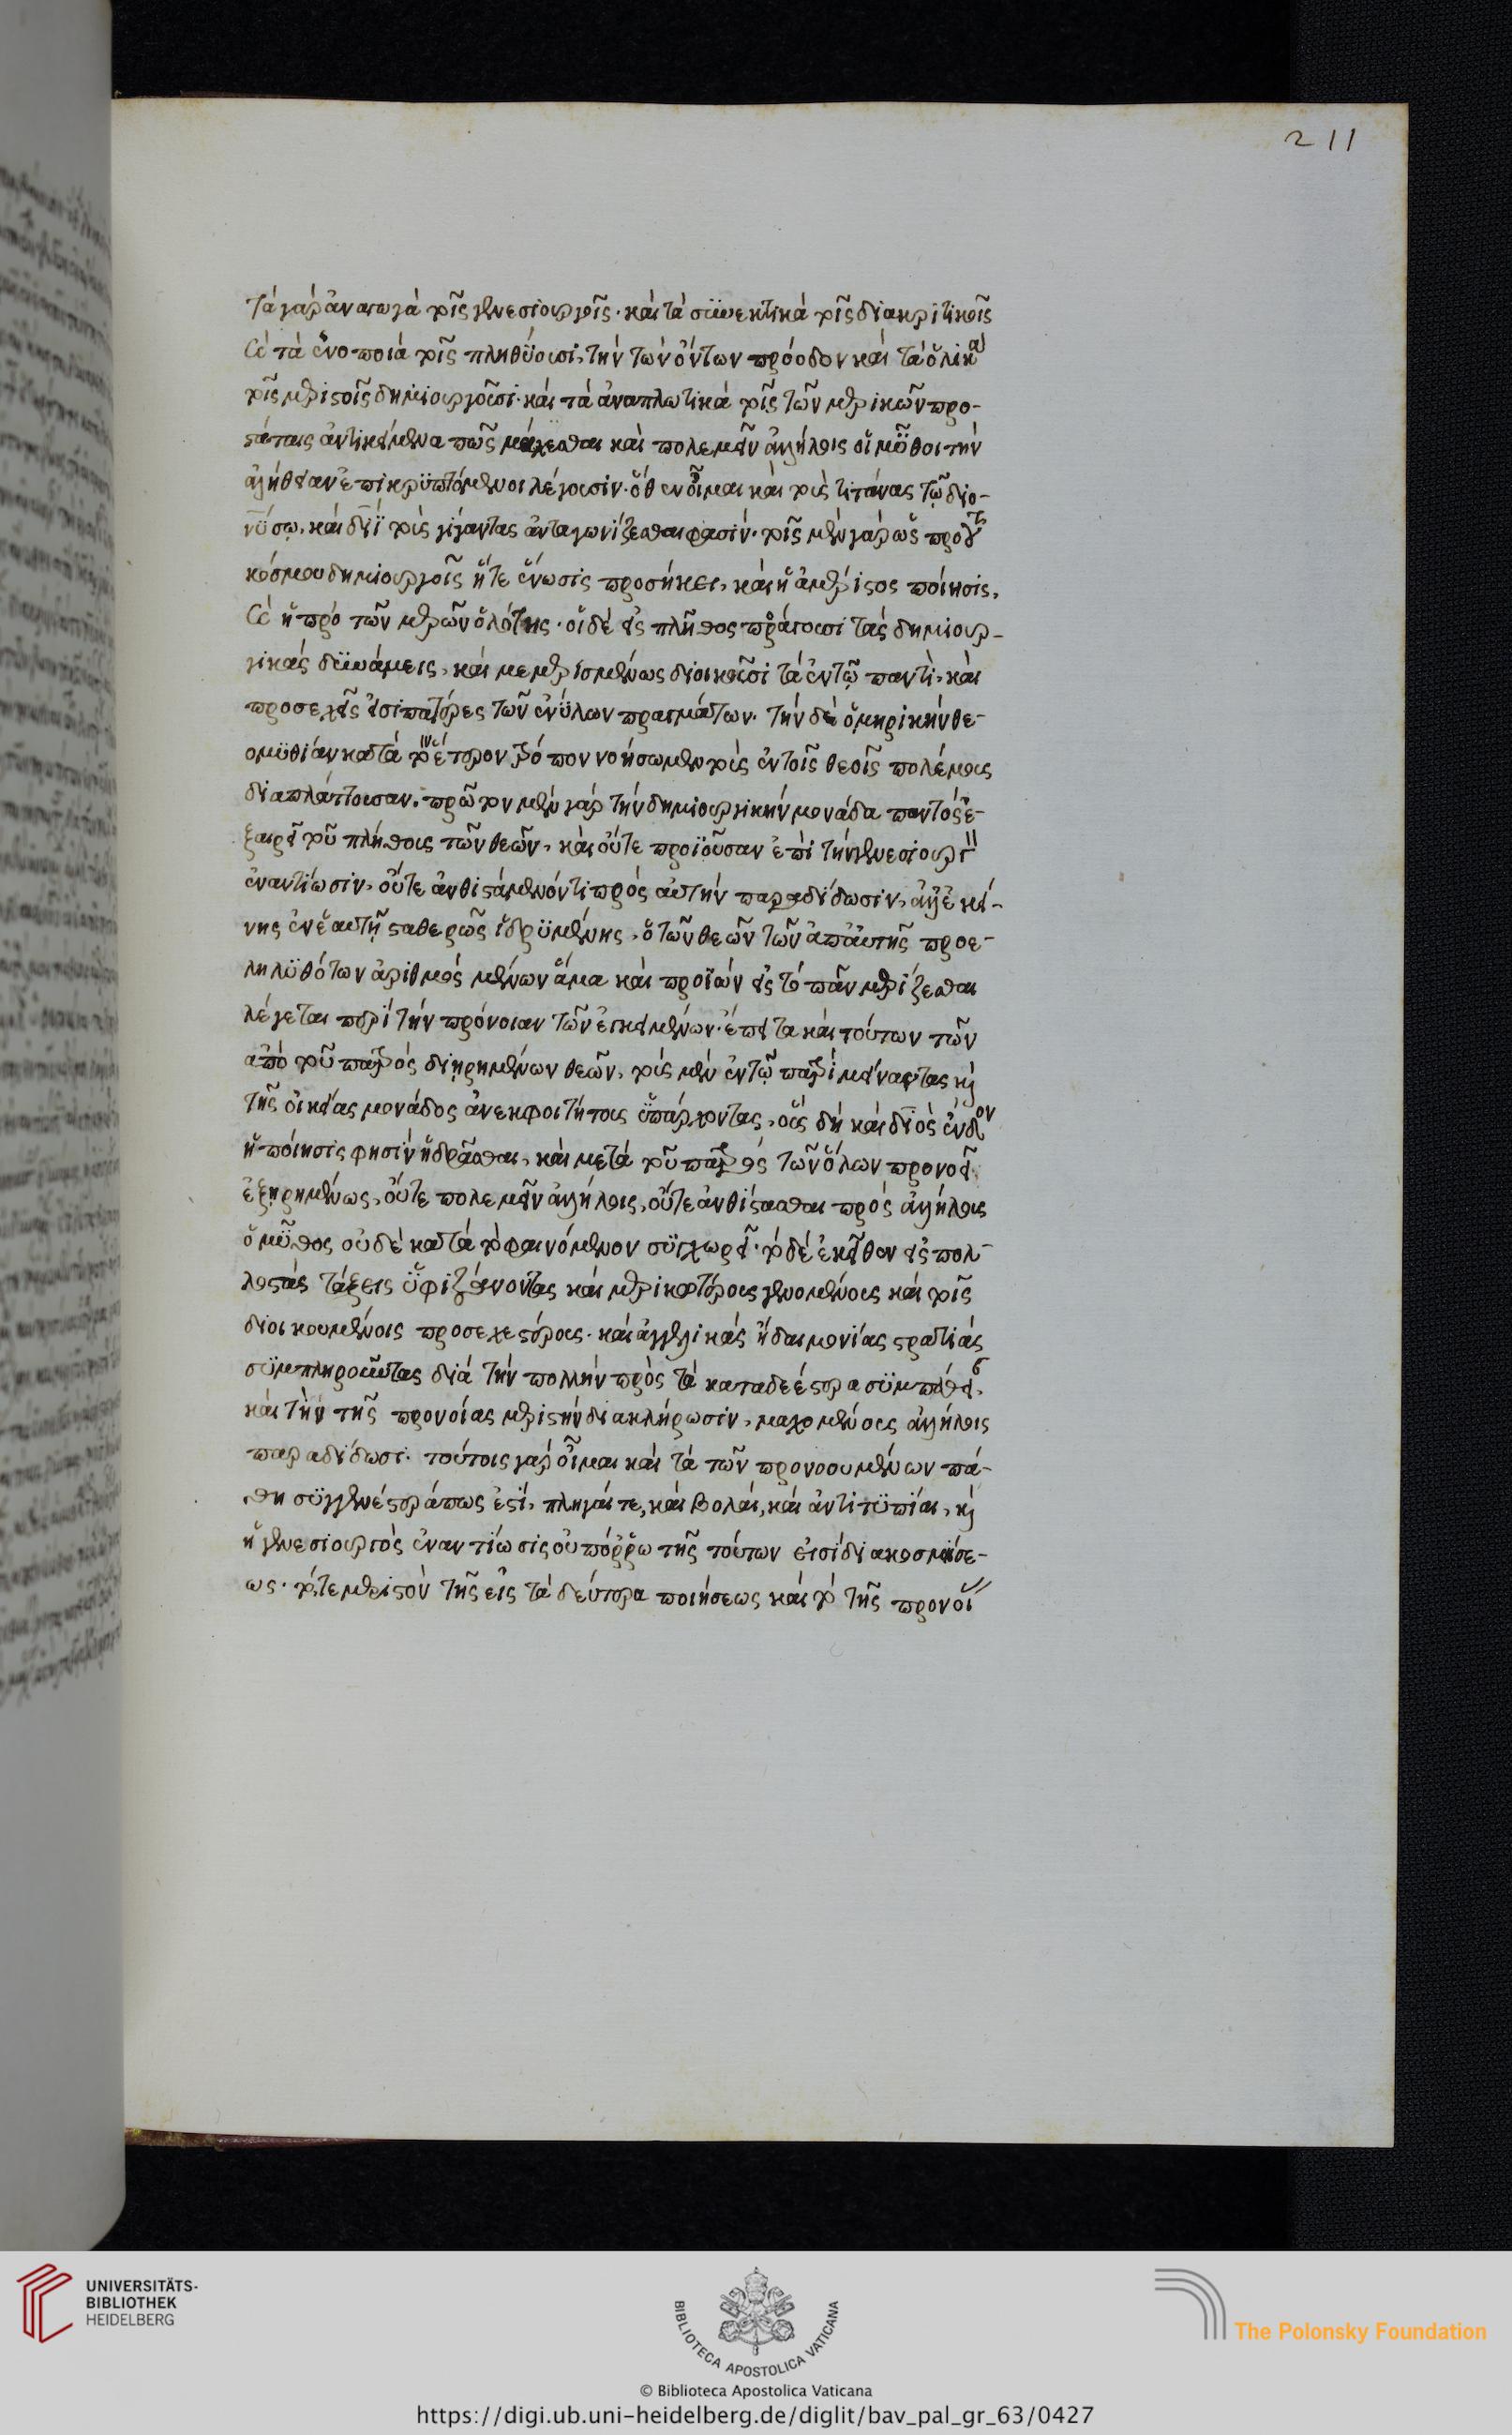 211
τὰ γὰρ ἀναγωγὰ τοῖς γενεσιουργοῖς· καὶ τὰ συνεκτικὰ τοῖς διακριτικοῖς
καὶ τὰ ἑνοποιὰ τοῖς πληθύουσι, τὴν τῶν ὄντων πρόοδον καὶ τὰ ὁλικὰ
τοῖς μεριστοῖς δημιουργοῦσι· καὶ τὰ ἀναπλωτικὰ τοῖς τῶν μερικῶν προ-
στάταις ἀντικείμενα πῶς μάχεσθαι καὶ πολεμεῖν ἀλλήλοις οἱ μῦθοι τὴν
ἀλήθειαν ἐπικρυπτόμενοι λέγουσιν· ὅθεν οἶμαι καὶ τοὺς τιτάνας τῷ διο-
νύσῳ, καὶ διῒ τοὺς γίγαντας ἀνταγωνίζεσθαι φασίν· τοῖς μὲν γὰρ ὡς πρὸ τοῦ
κόσμου δημιουργοῖς ἥτε ἕνωσις προσήκει, καὶ ἡ ἀμέριστος ποίησις,
καὶ ἡ πρὸ τῶν μερῶν ὁλότης· οἱ δὲ εἰς πλῆθος προάγουσι τὰς δημιουρ-
γικὰς δυνάμεις, καὶ μεμερισμένως διοικοῦσι τὰ ἐν τῷ παντὶ, καὶ
προσεχεῖς εἰσι πατέρες τῶν ἐνύλων πραγμάτων· τὴν δὲ ὁμηρικὴν θε-
ομυθίαν κατὰ τινὰ ἕτερον τρόπον νοήσωμεν τοὺς ἐν τοῖς θεοῖς πολέμους
διαπλάττουσαν· πρῶτον μὲν γὰρ τὴν δημιουργικὴν μονάδα παντὸς ἐ-
ξαιρεῖ τοῦ πλήθους τῶν θεῶν, καὶ οὔτε προϊοῦσαν ἐπὶ τὴν γενεσιουργὸν
ἐναντίωσιν, οὔτε ἀνθιστάμενόν τι πρὸς αὐτὴν παραδίδωσιν, ἀλλ' ἐκεί-
νης ἐν ἑαυτῇ σταθερῶς ἱδρυμένης, ὁ τῶν θεῶν τῶν ἀπ' αὐτῆς προε-
ληλυθότων ἀριθμὸς μένων ἅμα καὶ προϊὼν εἰς τὸ πᾶν μερίζεσθαι
λέγεται περὶ τὴν πρόνοιαν τῶν ἐγκειμένων· ἔπειτα καὶ τούτων τῶν
ἀπὸ τοῦ πατρὸς διῃρημένων θεῶν, τοὺς μὲν ἐν τῷ πατρὶ μείναντας καὶ
τῆς οἰκείας μονάδος ἀνεκφοιτήτους ὑπάρχοντας, οὓς δὴ καὶ διὸς ἔνδον
ἡ ποίησις φησὶν ἡδρᾶσθαι, καὶ μετὰ τοῦ πατρὸς τῶν ὅλων προνοεῖν
ἐξῃρημένως, οὔτε πολεμεῖν ἀλλήλοις, οὔτε ἀνθίστασθαι πρὸς ἀλλήλους
ὁ μῦθος οὐδὲ κατὰ τὸ φαινόμενον συγχωρεῖ· τὸ δὲ ἐκεῖθεν εἰς πολ-
λοστὰς τάξεις ὑφιζάνοντας καὶ μερικωτέρους γενομένους καὶ τοῖς
διοικουμένοις προσεχεστέρους· καὶ ἀγγελικὰς ἢ δαιμονίας στρατιὰς
συμπληροῦντας διὰ τὴν πολλὴν πρὸς τὰ καταδεέστερα συμπάθειαν,
καὶ τὴν τῆς προνοίας μεριστὴν διακλήρωσιν, μαχομένους ἀλλήλοις
παραδίδωσι· τούτοις γὰρ οἶμαι καὶ τὰ τῶν προνοουμένων πά-
θη συγγενέστερά πως ἐστί, πληγαί τε, καὶ βολαί, καὶ ἀντιτυπίαι, καὶ
ἡ γενεσιουργὸς ἐναντίωσις οὐ πόρρω τῆς τούτων εἰσὶ διακοσμήσε-
ως· τό τε μεριστὸν τῆς εἰς τὰ δεύτερα ποιήσεως καὶ τὸ τῆς προνοί
UNIVERSITÄTS-
BIBLIOTHEK
HEIDELBERG
BIBLIOTECA APOSTOLICA VATICANA
The Polonsky Foundation
© Biblioteca Apostolica Vaticana
https://digi.ub.uni-heidelberg.de/diglit/bav_pal_gr_63/0427